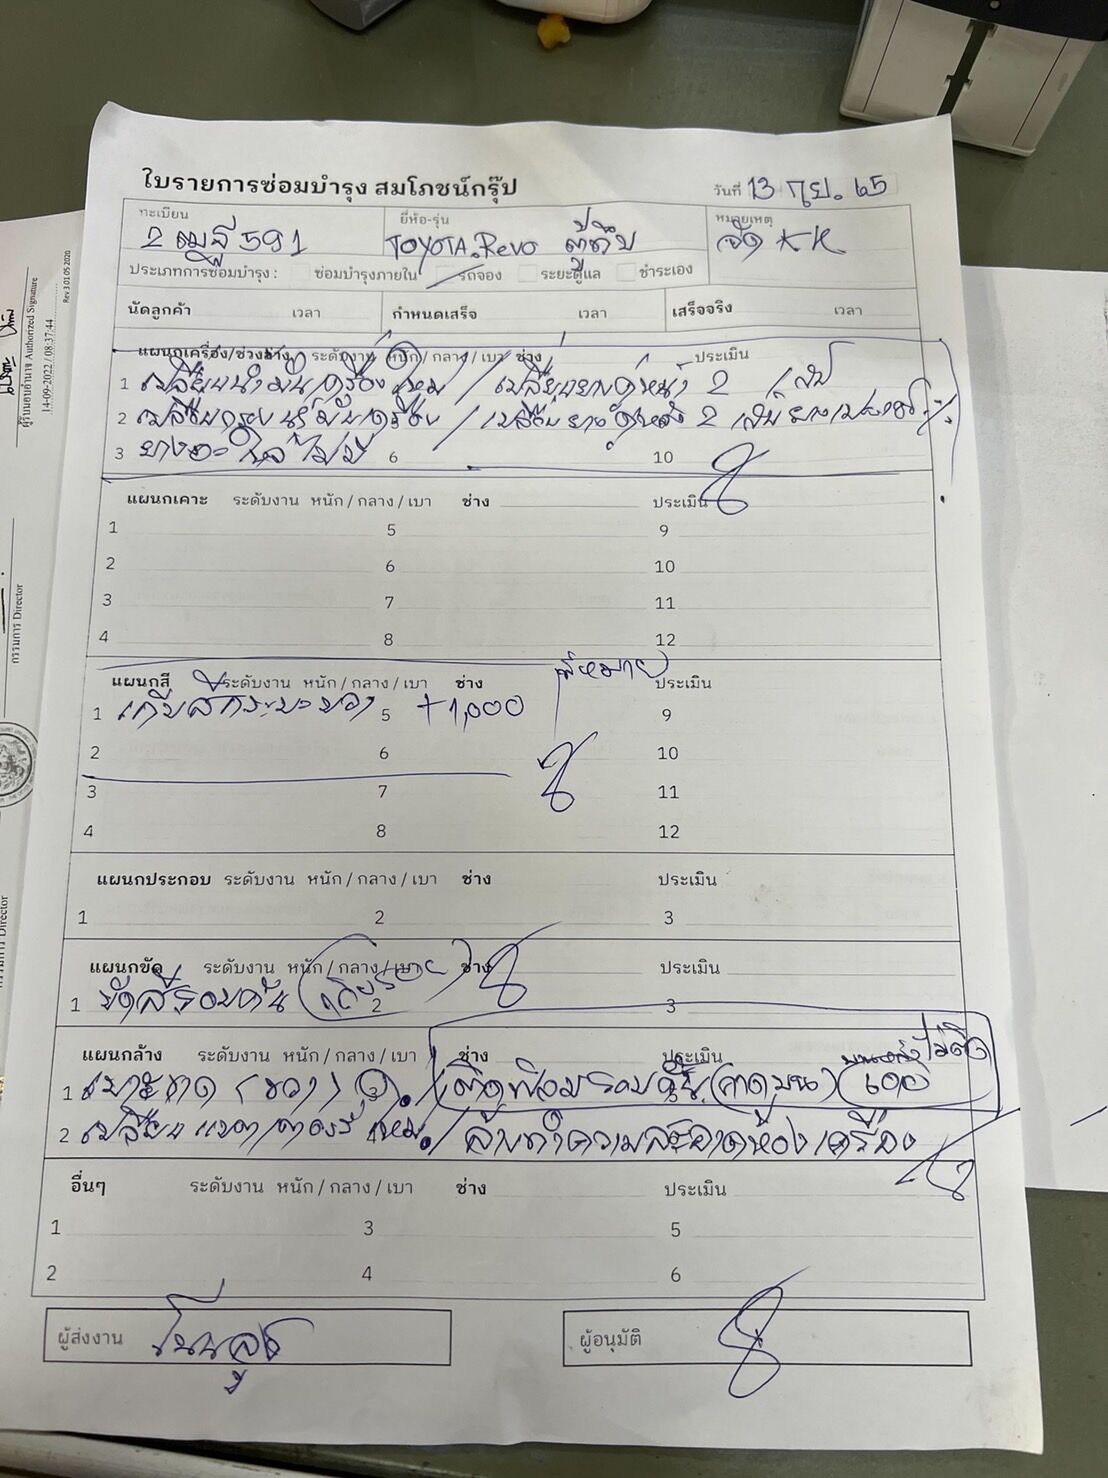 ใบรายการซ่อมบำรุง สมโภชน์กรุ๊ป
วันที่ 13 กย. 65
ทะเบียน ยี่ห้อ-รุ่น หมายเหตุ
2 591 TOYOTA Revo ตู้ทึบ จัด KK
ประเภทการซ่อมบำรุง : ซ่อมบำรุงภายใน รถจอง ระยะดูแล ชำระเอง
นัดลูกค้า เวลา กำหนดเสร็จ เวลา เสร็จจริง เวลา
แผนกเครื่อง/ช่วงล่าง ระดับงาน หนัก / กลาง / เบา ช่าง ประเมิน
1 เปลี่ยนน้ำมันเครื่องใหม่ / เปลี่ยนยางคู่หน้า 2 เส้น
2 เปลี่ยนกรองน้ำมันเครื่อง / เปลี่ยนยางคู่หลัง 2 เส้น
3 ยางอะไหล่ไม่มี 6 10
แผนกเคาะ ระดับงาน หนัก / กลาง / เบา ช่าง ประเมิน
1 5 9
2 6 10
3 7 11
4 8 12
พี่หมาย
แผนกสี ระดับงาน หนัก / กลาง / เบา ช่าง ประเมิน
1 เก็บสีกระบะ 5 +1,000 9
2 6 10
3 7 11
4 8 12
แผนกประกอบ ระดับงาน หนัก / กลาง / เบา ช่าง ประเมิน
1 2 3
แผนกขัด ระดับงาน หนัก / กลาง / เบา ช่าง ประเมิน
1 ขัดสีรอบคัน 2 3
แผนกล้าง ระดับงาน หนัก / กลาง / เบา ช่าง ประเมิน
บานหลังไม่ติด
1 เบาะขาด (ขวา) / ติดฟิล์มรอบคัน
2 เปลี่ยนแบตเตอรี่ใหม่ / ล้างทำความสะอาดห้องเครื่อง
อื่นๆ ระดับงาน หนัก / กลาง / เบา ช่าง ประเมิน
1 3 5
2 4 6
ผู้ส่งงาน ผู้อนุมัติ
ผู้รับมอบอำนาจ Authorized Signature
14-09-2022 / 08:37:44
Rev.3 01 05 2020
กรรมการ Director